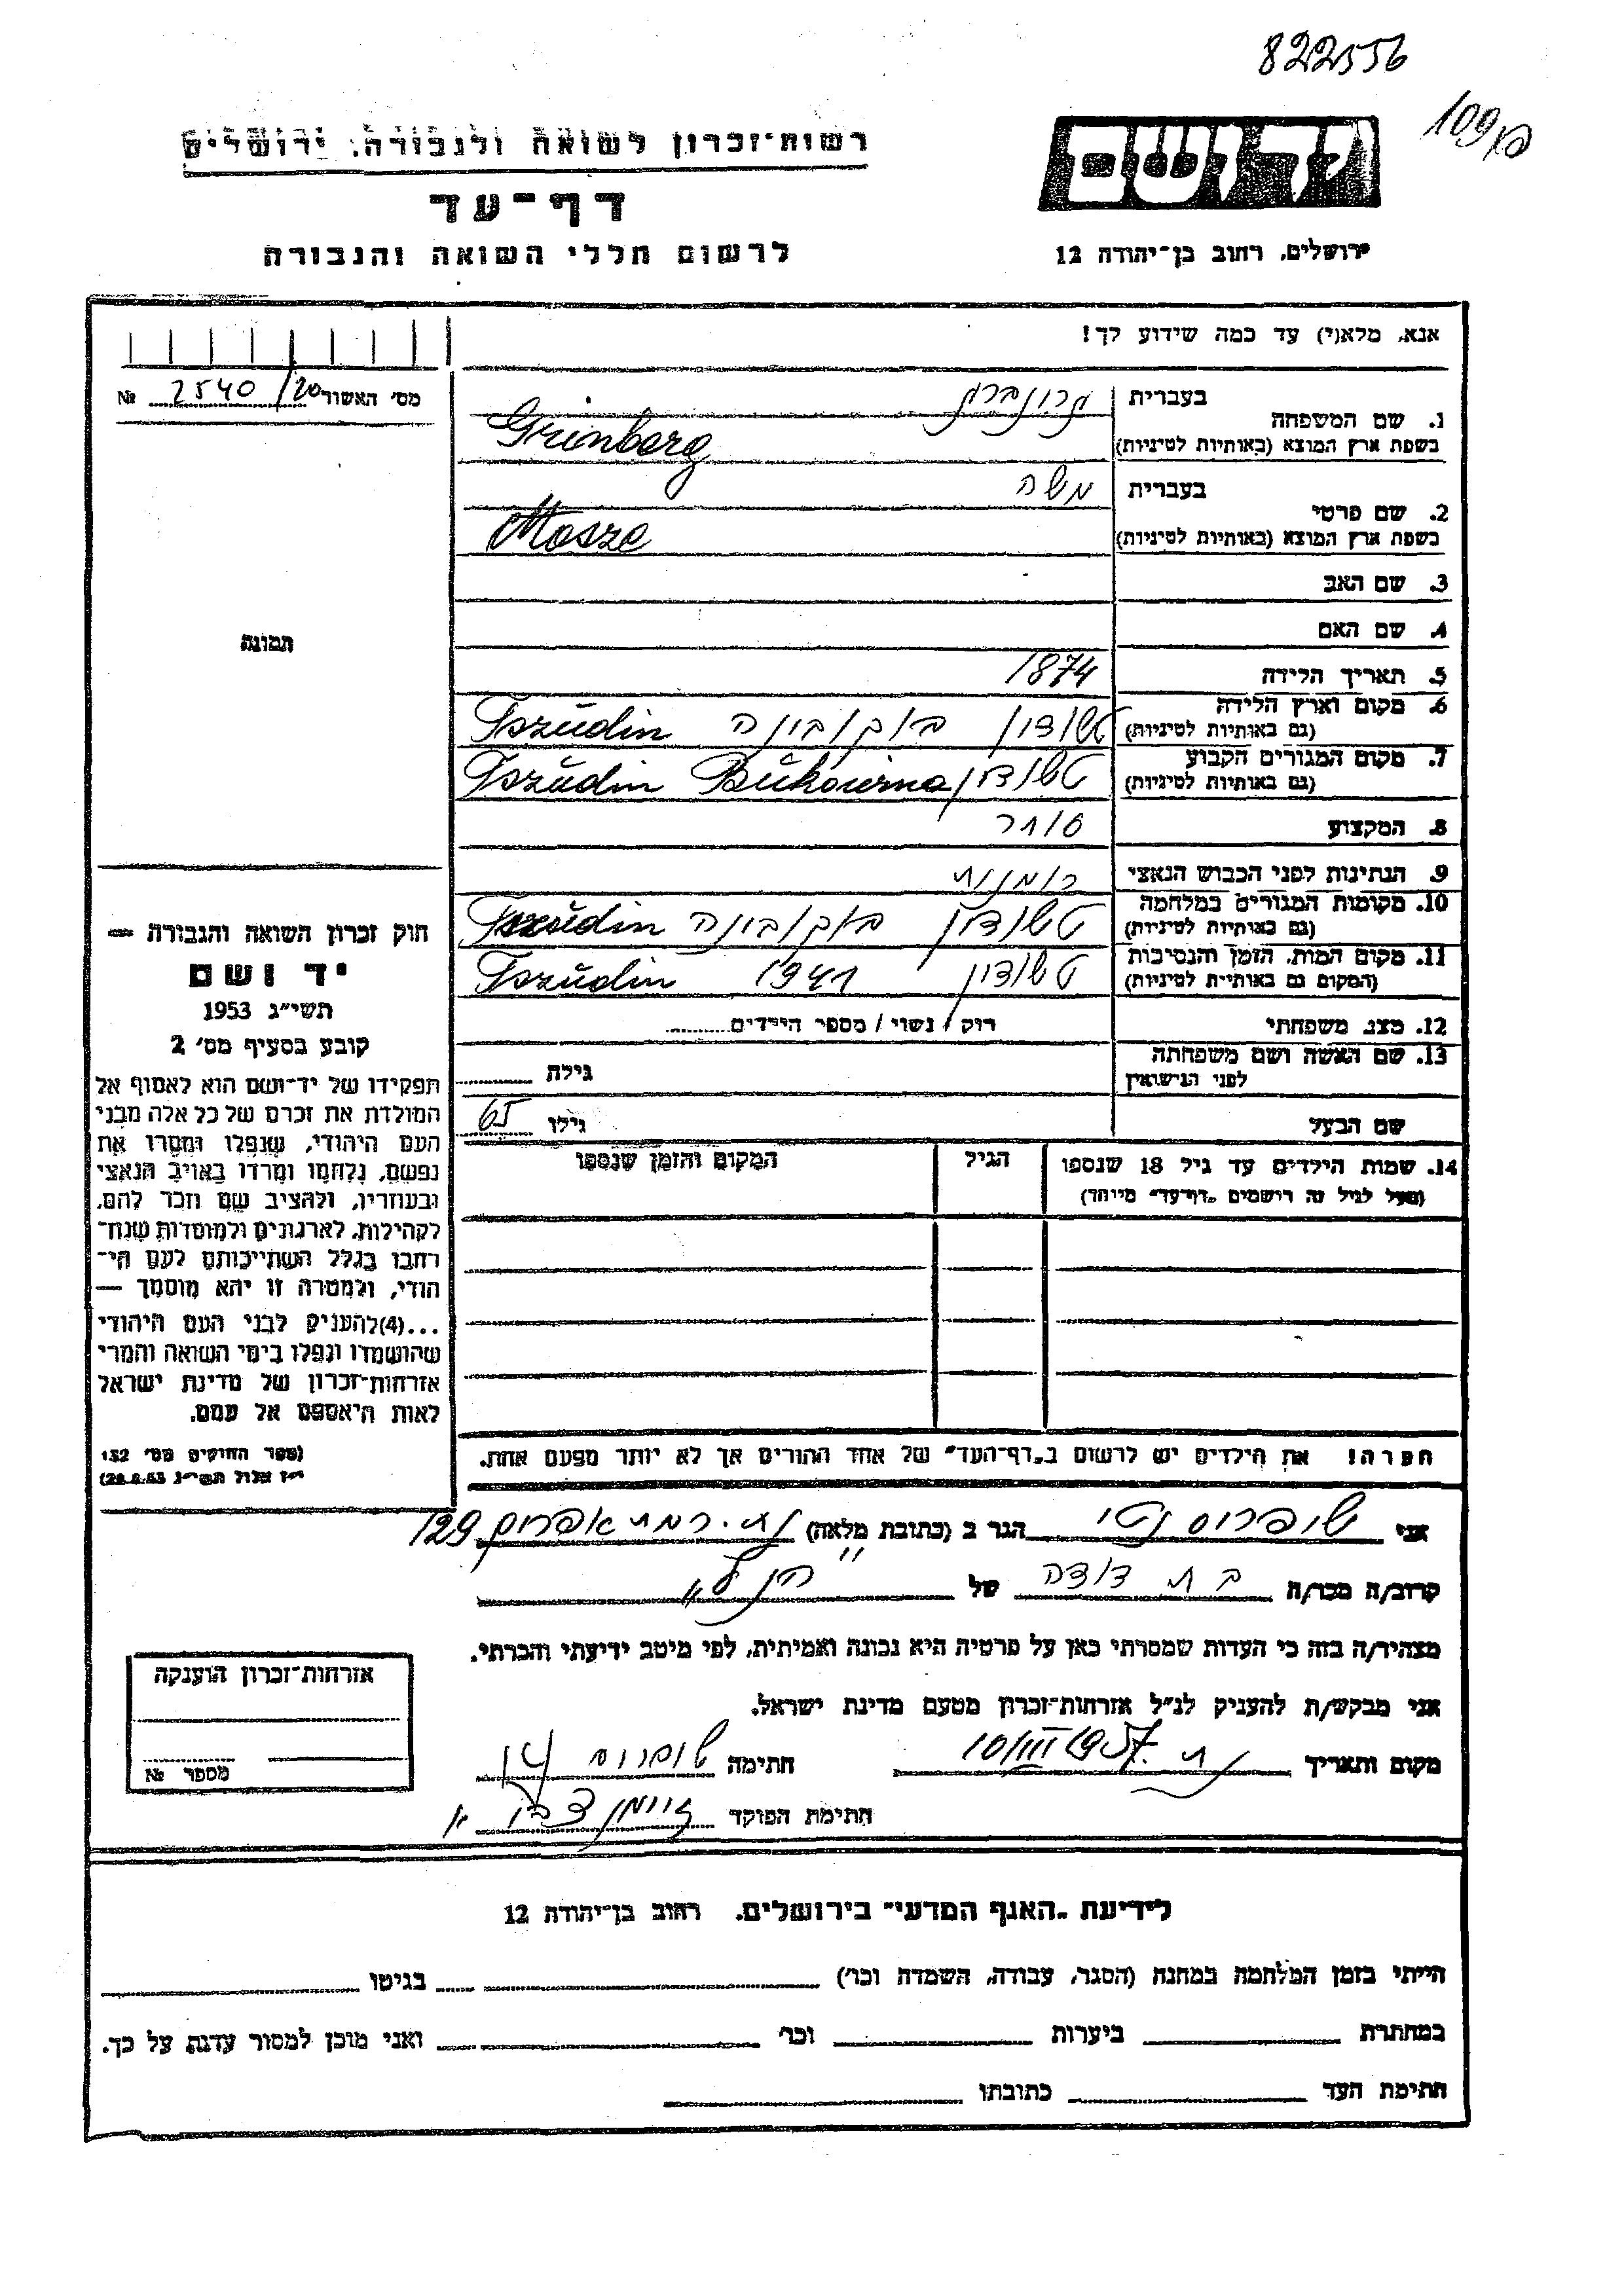 822556
רשות-זכרון לשואה ולגבורה, ירושלים
יד ושם
דף-עד
לרשום חללי השואה והגבורה
ירושלים, רחוב בן-יהודה 12
אנא, מלא(י) עד כמה שידוע לך!
מס' האשור 2540/20 №
1. שם המשפחה בעברית גרונברג
בשפת ארץ המוצא (באותיות לטיניות) Grünberg
2. שם פרטי בעברית משה
בשפת ארץ המוצא (באותיות לטיניות) Mosze
3. שם האב
4. שם האם
תמונה
5. תאריך הלידה 1874
6. מקום וארץ הלידה (גם באותיות לטיניות) טשודין בוקובינה Tszudin
7. מקום המגורים הקבוע (גם באותיות לטיניות) טשודין Tszudin Bukowina
8. המקצוע סוחר
9. הנתינות לפני הכבוש הנאצי רומנית
10. מקומות המגורים במלחמה (גם באותיות לטיניות) טשודין בוקובינה Tszudin
11. מקום המות, הזמן והנסיבות (המקום גם באותיות לטיניות) טשודין 1941 Tszudin
12. מצב משפחתי רווק / נשוי / מספר הילדים
13. שם האשה ושם משפחתה לפני הנישואין גילה
שם הבעל גילו 65
14. שמות הילדים עד גיל 18 שנספו הגיל המקום והזמן שנספו
(מעל לגיל זה רושמים "דף-עד" מיוחד)
הערה! את הילדים יש לרשום ב"דף-העד" של אחד ההורים אך לא יותר מפעם אחת.
חוק זכרון השואה והגבורה —
יד ושם
תשי"ג 1953
קובע בסעיף מס' 2
תפקידו של יד-ושם הוא לאסוף אל
המולדת את זכרם של כל אלה מבני
העם היהודי, שנפלו ומסרו את
נפשם, נלחמו ומרדו באויב הנאצי
ובעוזריו, ולהציב שם וזכר להם,
לקהילות, לארגונים ולמוסדות שנח-
רבו בגלל השתייכותם לעם הי-
הודי, ולמטרה זו יהא מוסמך —
...(4) להעניק לבני העם היהודי
שהושמדו ונפלו בימי השואה והמרי
אזרחות-זכרון של מדינת ישראל
לאות היאספם אל עמם.
(ספר החוקים מס' 132
י"ז אלול תשי"ג 28.8.53)
אני הגר ב (כתובת מלאה) 129
קרוב/ה מכר/ה בת דודה של
מצהיר/ה בזה כי העדות שמסרתי כאן על פרטיה היא נכונה ואמיתית, לפי מיטב ידיעתי והכרתי.
אני מבקש/ת להעניק לנ"ל אזרחות-זכרון מטעם מדינת ישראל.
מקום ותאריך 10/III 1957 חתימה
חתימת הפוקד
אזרחות-זכרון הוענקה
מספר №
לידיעת "האגף המדעי" בירושלים, רחוב בן-יהודה 12
הייתי בזמן המלחמה במחנה (הסגר, עבודה, השמדה וכו') בגיטו
במחתרת ביערות וכו' ואני מוכן למסור עדות על כך.
חתימת העד כתובתו